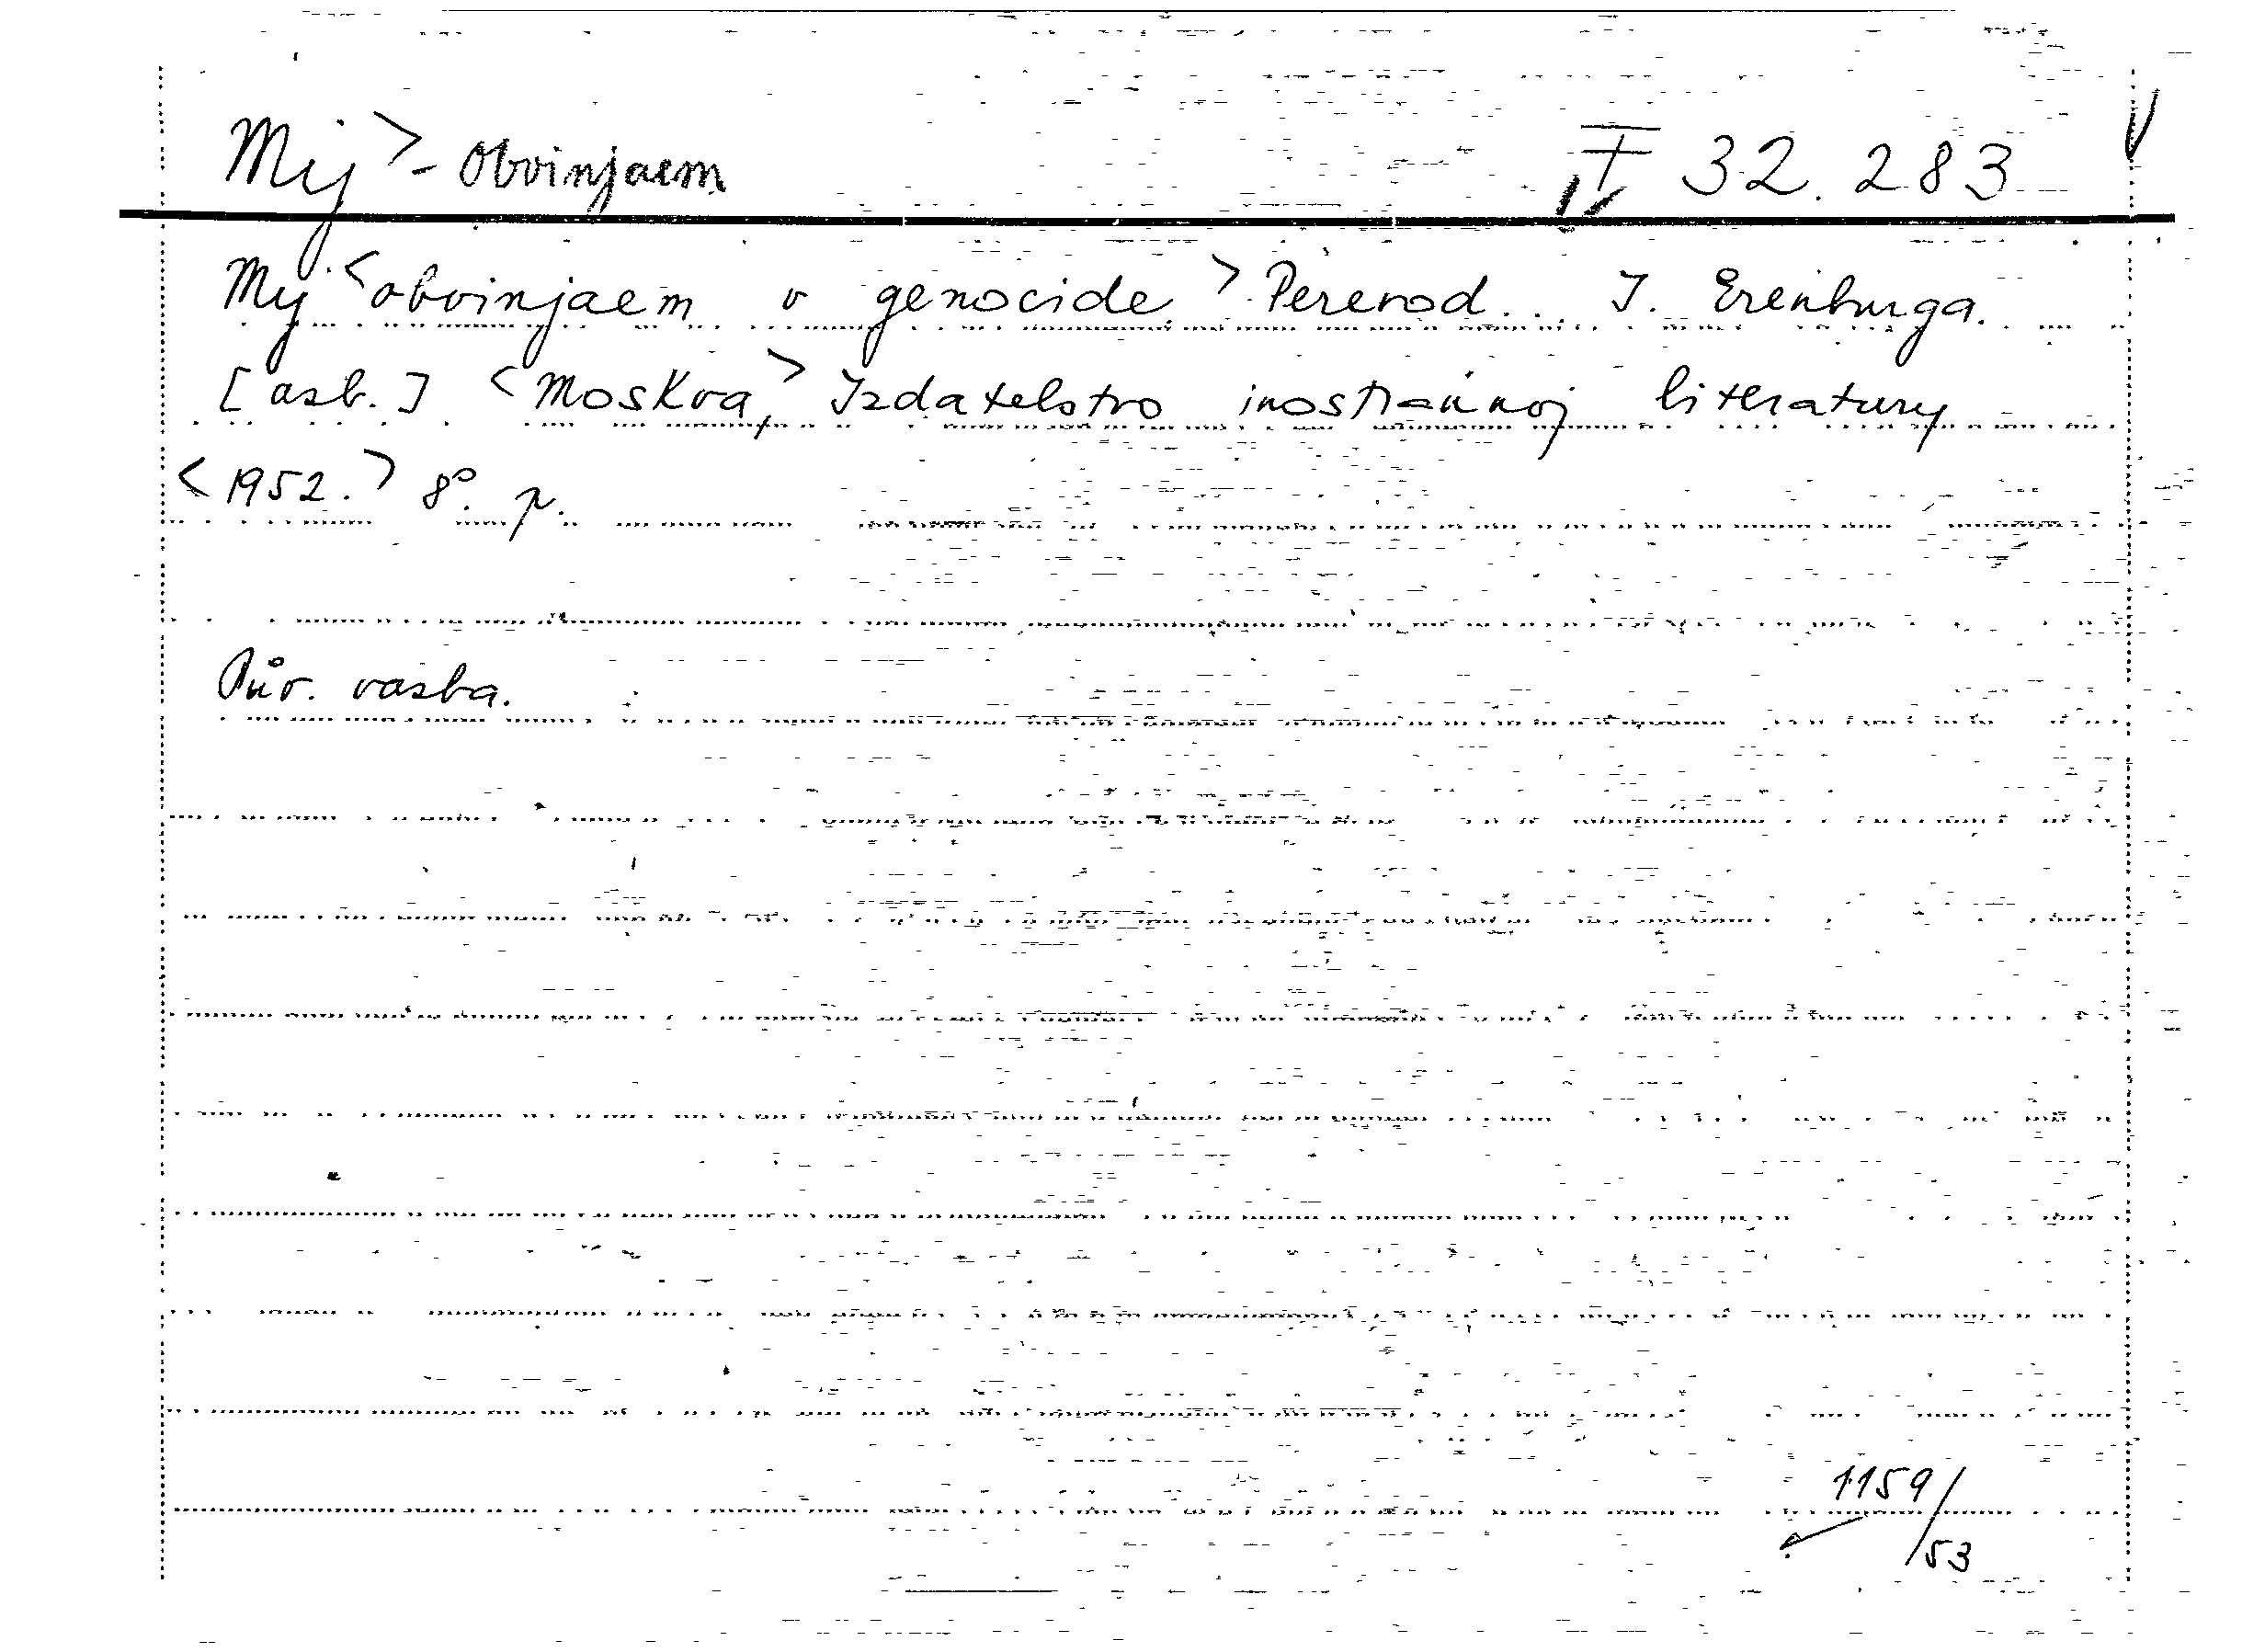 My > - obvinjaem I 32.283
My < obvinjaem v genocide. > Perevod.. I. Erenburga.
[asb.] < Moskva, > Izdatelstvo inostrannoj literatury
< 1952. > 8°. p.
Pův. vazba.
1159/
/53